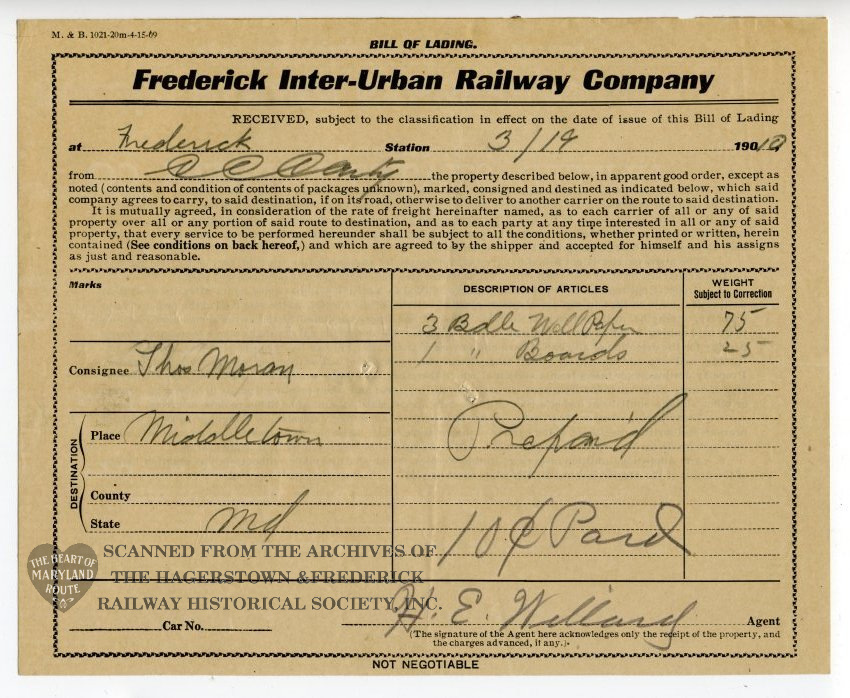 M. & B. 1021-20m-4-15-09
BILL OF LADING.
Frederick Inter-Urban Railway Company
RECEIVED, subject to the classification in effect on the date of issue of this Bill of Lading
at Frederick Station 3/19 190 10
from C C Carty the property described below, in apparent good order, except as
noted (contents and condition of contents of packages unknown), marked, consigned and destined as indicated below, which said
company agrees to carry, to said destination, if on its road, otherwise to deliver to another carrier on the route to said destination.
It is mutually agreed, in consideration of the rate of freight hereinafter named, as to each carrier of all or any of said
property over all or any portion of said route to destination, and as to each party at any time interested in all or any of said
property, that every service to be performed hereunder shall be subject to all the conditions, whether printed or written, herein
contained (See conditions on back hereof,) and which are agreed to by the shipper and accepted for himself and his assigns
as just and reasonable.
Marks
DESCRIPTION OF ARTICLES
WEIGHT
Subject to Correction
3 Bdle Wall Paper 75
1 " Boards 25
Consignee Thos Moran
DESTINATION
Place Middletown
Prepaid
County
State Md
10¢ Paid
THE HEART OF
MARYLAND
ROUTE
SCANNED FROM THE ARCHIVES OF
THE HAGERSTOWN & FREDERICK
RAILWAY HISTORICAL SOCIETY, INC.
Car No.
H. E. Willard Agent
(The signature of the Agent here acknowledges only the receipt of the property, and
the charges advanced, if any.)
NOT NEGOTIABLE